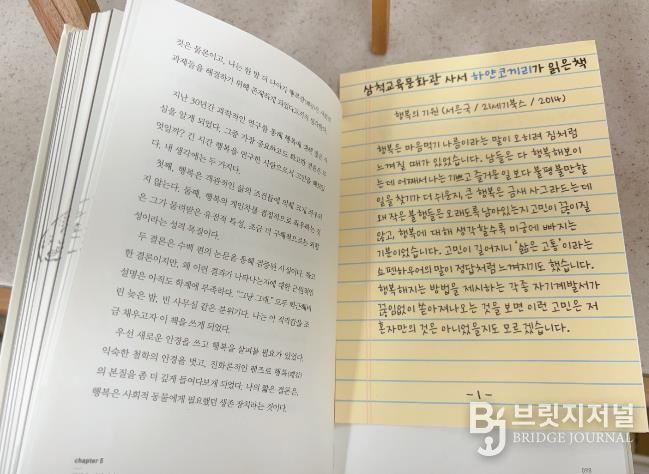 것은 물론이고, 나는 한 발 더 나아가
과제들을 해결하기 위해
지난 30년간 과학적인 연구를 통해 행복에
실을 알게 되었다. 그중 가장 중요하다고
멋일까? 긴 시간 행복을 연구한 사람으로서
다. 내 생각에는 두 가지다.
첫째, 행복은 객관적인 삶의 조건들에
지 않는다. 둘째, 행복의 개인차를 결정적으로
은 그가 물려받은 유전적 특성, 조금 더 구체적으로는
성이라는 성격 특질이다.
두 결론은 수백 편의 논문을 통해 검증된 사실이다. 하지
한 결론이지만, 왜 이런 결과가 나타나는지에 대한 근원적인
설명은 아직도 학계에 부족하다. "그냥 그래."
린 늦은 밤, 빈 사무실 같은 분위기다. 나는 이
금 채우고자 이 책을 쓰게 되었다.
우선 새로운 안경을 쓰고 행복을 살펴볼 필요가 있었다.
익숙한 철학의 안경을 벗고, 진화론적인 렌즈로 행복(쾌감)
의 본질을 좀 더 깊게 들여다보게 되었다. 나의 짧은 결론은,
행복은 사회적 동물에게 필요했던 생존 장치라는 것이다.
chapter 5
삼척교육문화관 사서 하얀코끼리가 읽은 책
행복의 기원 (서은국 / 21세기북스 / 2014)
행복은 마음먹기 나름이라는 말이 오히려 짐처럼
느껴질 때가 있었습니다. 남들은 다 행복해보이
는데 어째서 나는 기쁘고 즐거운 일보다 불평불만할
일을 찾기가 더 쉬운지, 큰 행복은 금새 사그라드는데
왜 작은 불행들은 오래도록 남아있는지 고민이 끊이질
않고, 행복에 대해 생각할수록 미궁에 빠지는
기분이었습니다. 고민이 길어지니 '삶은 고통'이라는
쇼펜하우어의 말이 정답처럼 느껴지기도 했습니다.
행복해지는 방법을 제시하는 각종 자기계발서가
끊임없이 쏟아져나오는 것을 보면 이런 고민은 저
혼자만의 것은 아니었을지도 모르겠습니다.
- 1 -
브릿지저널
BRIDGE JOURNAL
093